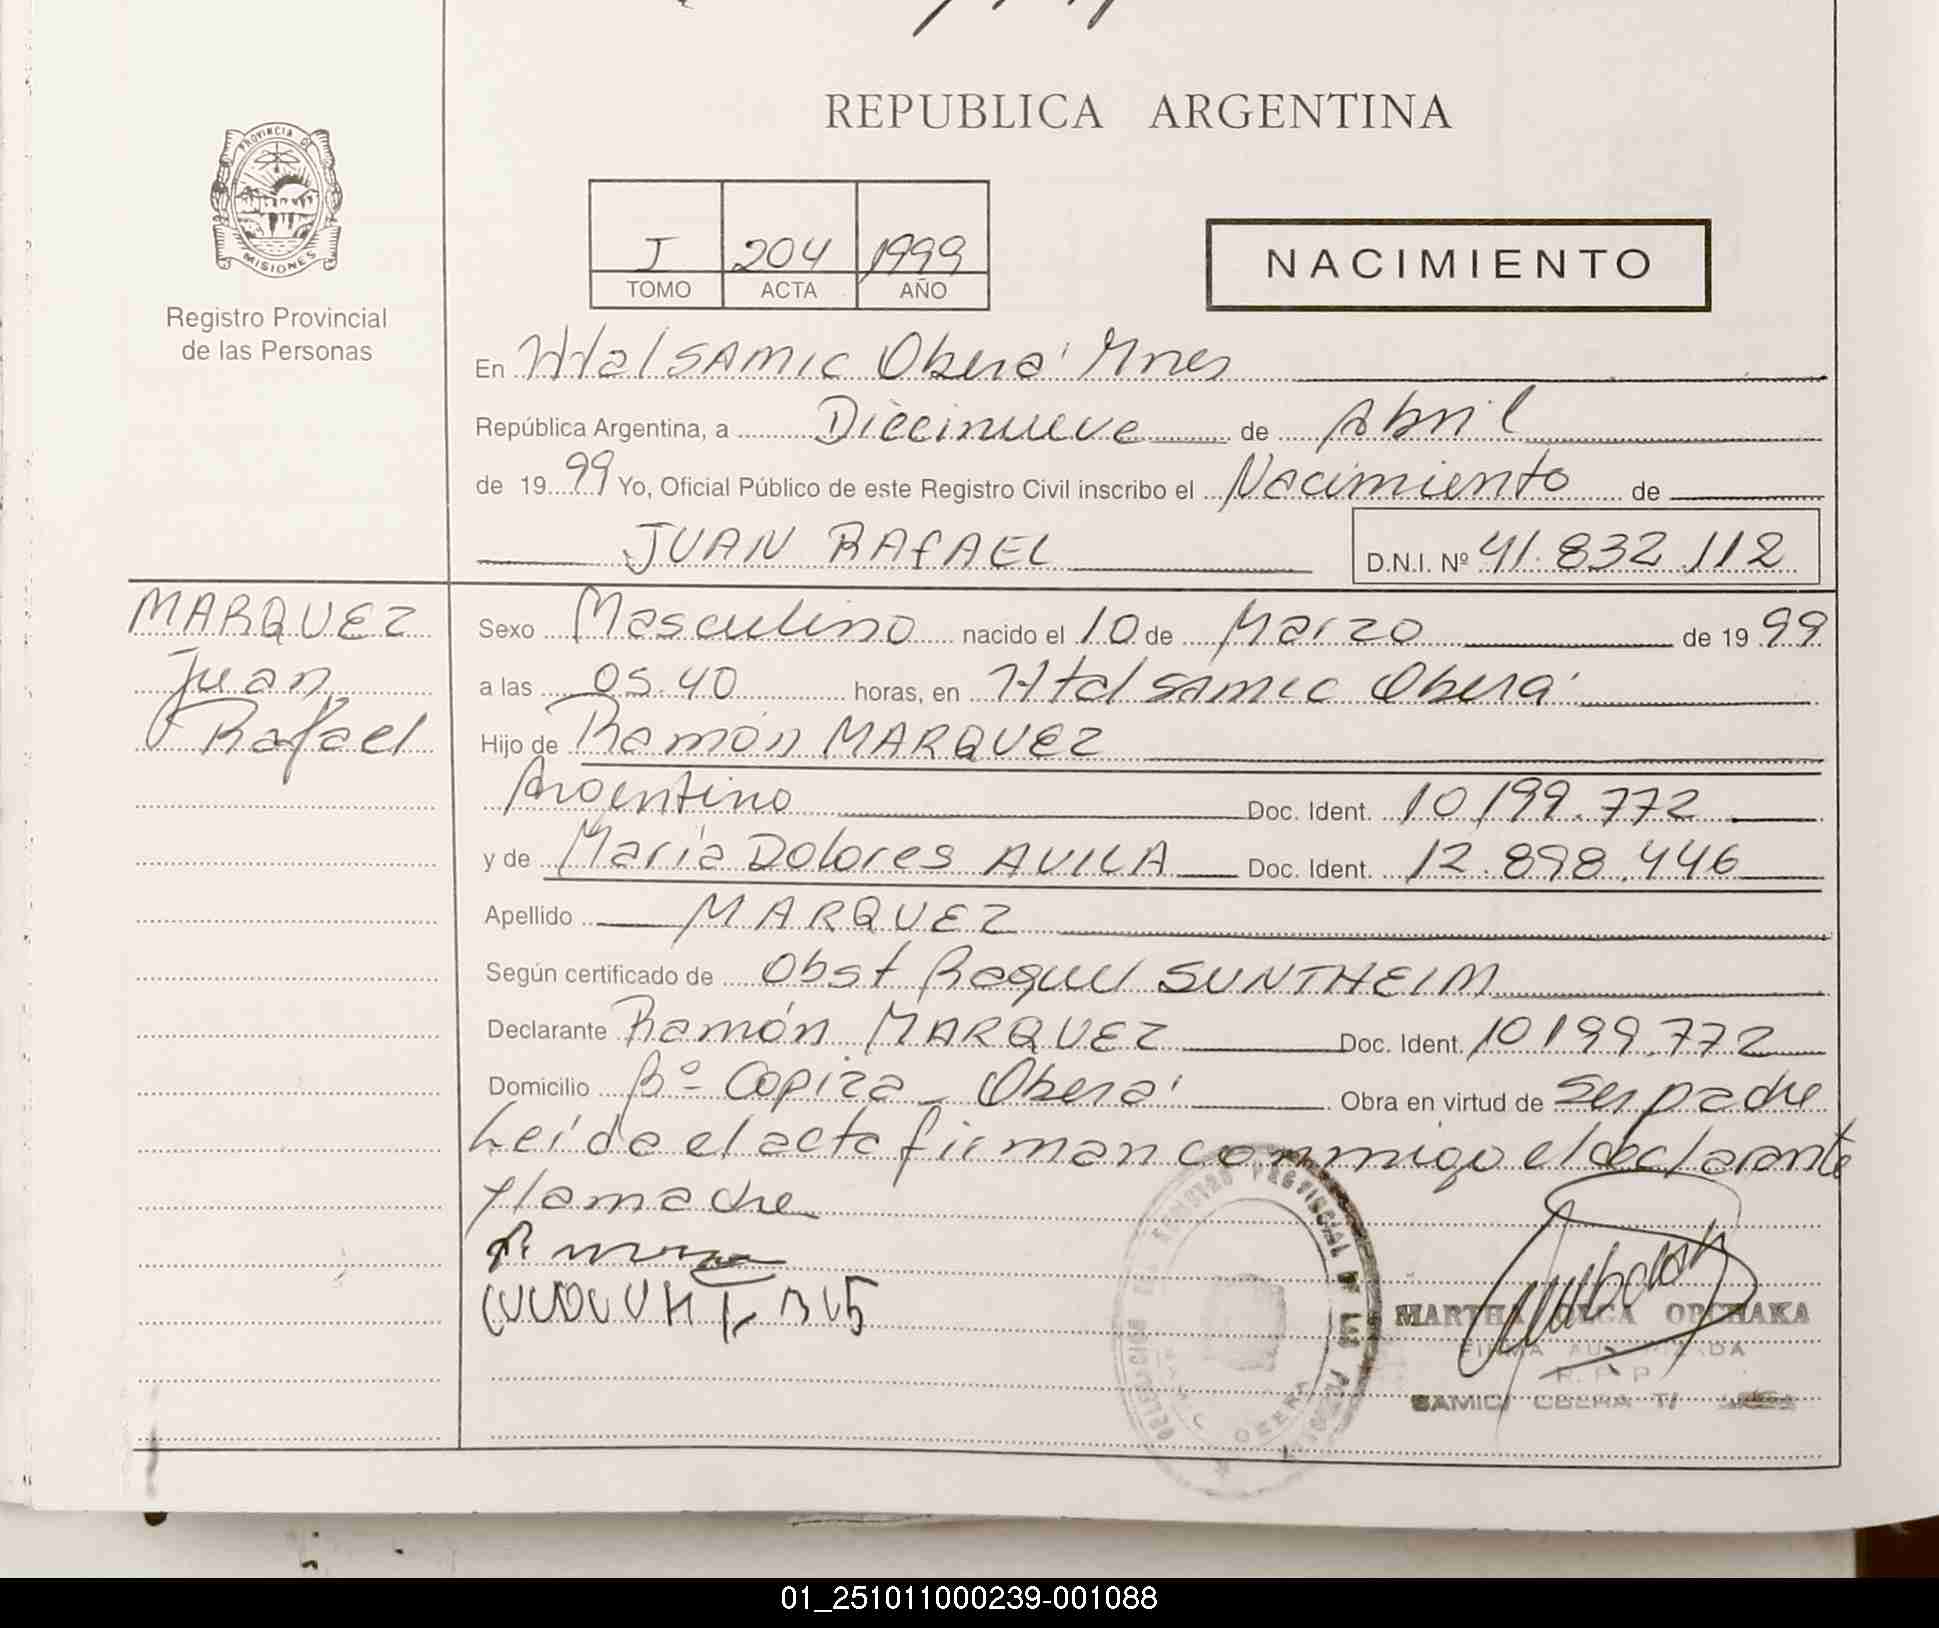 REPUBLICA ARGENTINA
PROVINCIA DE
MISIONES
Registro Provincial
de las Personas
J 204 1999
TOMO ACTA AÑO
NACIMIENTO
En Htal SAMIC Oberá Mnes
República Argentina, a Diecinueve de Abril
de 1999 Yo, Oficial Público de este Registro Civil inscribo el Nacimiento de
JUAN RAfAEL D.N.I. Nº 41.832.112
MARQUEZ
Juan
Rafael
Sexo Masculino nacido el 10 de Marzo de 1999
a las 05.40 horas, en Htal SAMIC Oberá
Hijo de Ramón MARQUEZ
Argentino Doc. Ident. 10.199.772
y de María Dolores AVILA Doc. Ident. 12.898.446
Apellido MARQUEZ
Según certificado de Obst Raquel SUNTHEIM
Declarante Ramón MARQUEZ Doc. Ident. 10199.772
Domicilio Bº Copiza - Oberá Obra en virtud de ser padre
Leída el acta firman conmigo el declarante
y la madre
DELEGACION REGISTRO PROVINCIAL DE LAS
OBERA
MARTHA OPCHAKA
FIRMA AUTORIZADA
R.P.P.
SAMIC OBERA
01_251011000239-001088